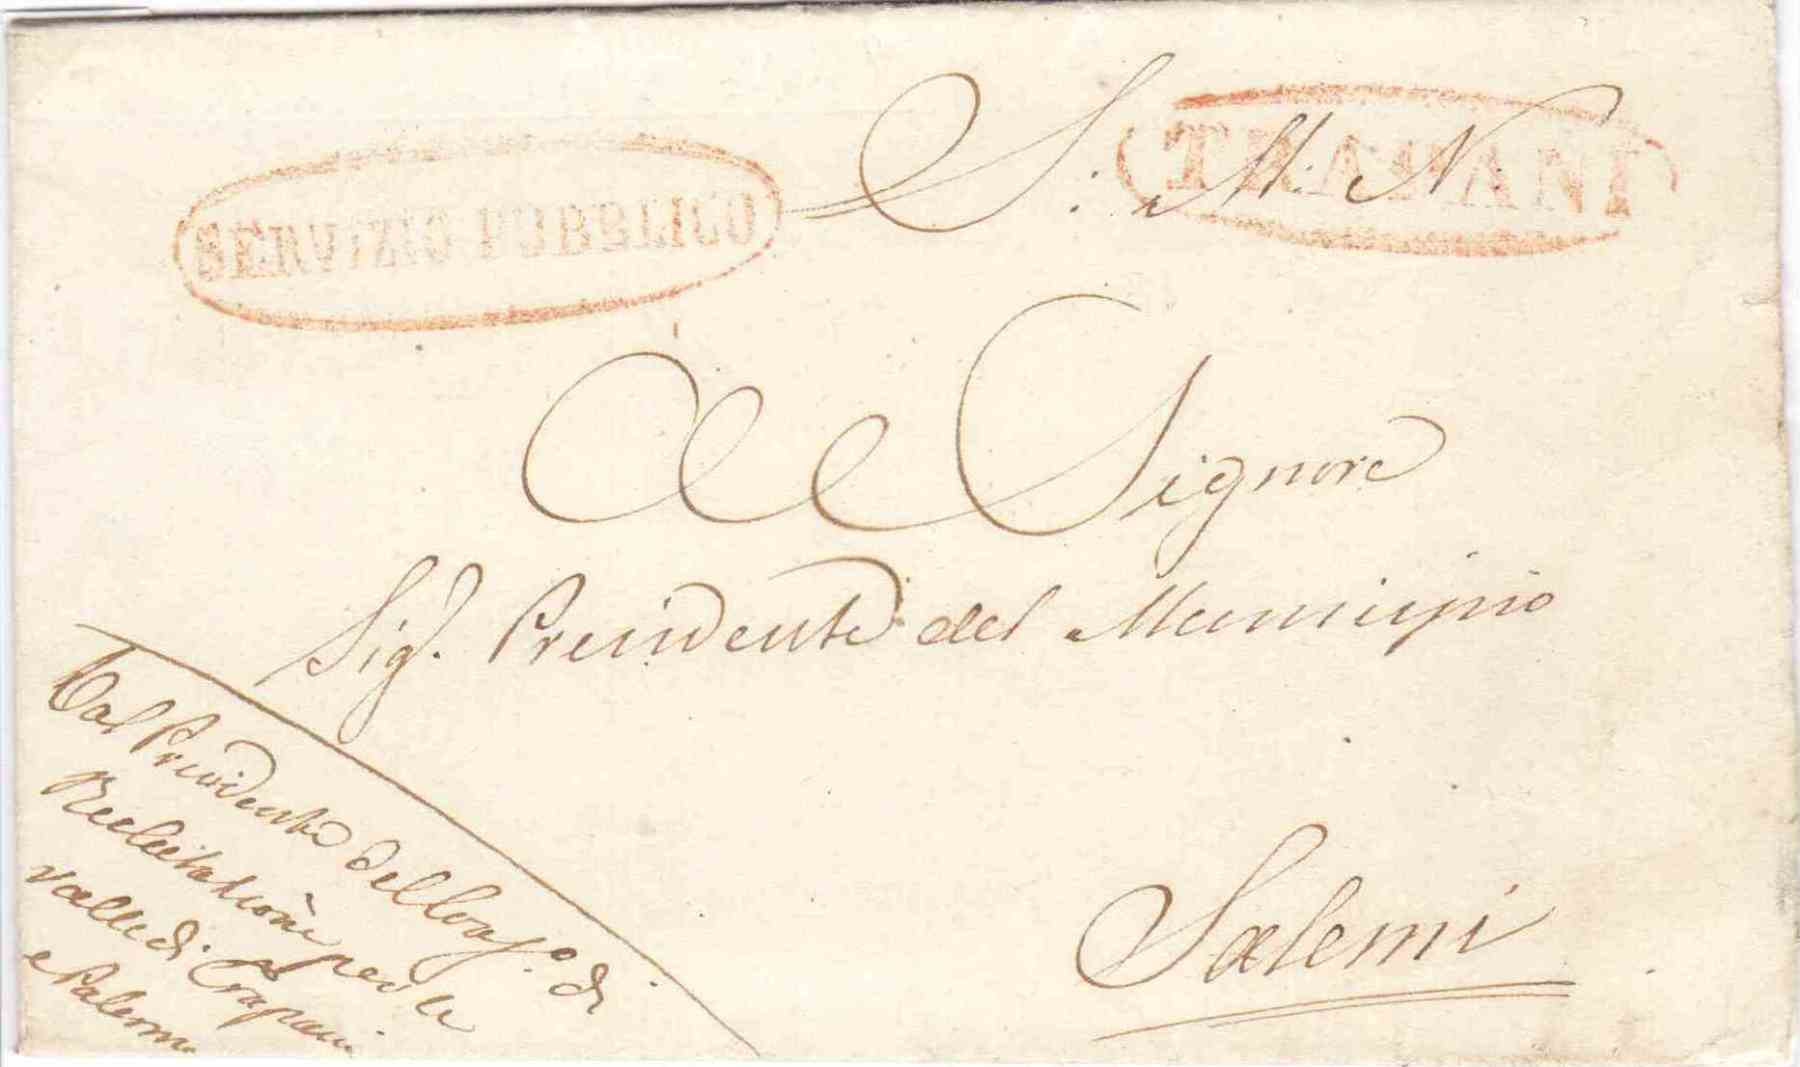 SERVIZIO PUBBLICO
TRAPANI
S. M. N.
Al Signore
Sig.r Presidente del Municipio
Salemi
Dal Presidente del Cons.o di
Reclutazione per le
valle di Trapani
e Palermo